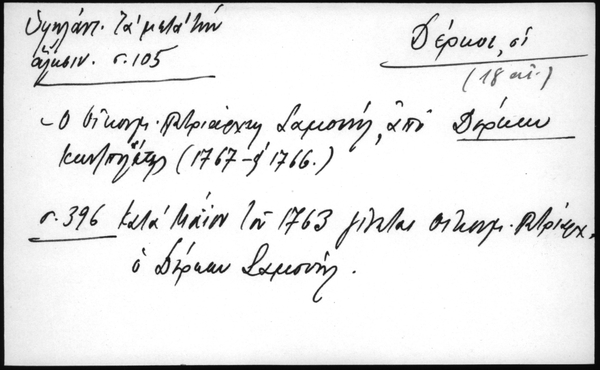 Ὑψηλάντ. Τὰ μετὰ τὴν
ἅλωσιν. σ. 105
Δέρκοι, οἱ
(18 αἰ.)
- Ὁ Οἰκουμ. Πατριάρχης Σαμουήλ, ἀπὸ Δέρκων
(1767-ς´ 1766.)
σ. 396 Κατὰ Μάϊον τοῦ 1763 γίνεται οἰκουμ. Πατριάρχ.
ὁ Δέρκων Σαμουήλ.